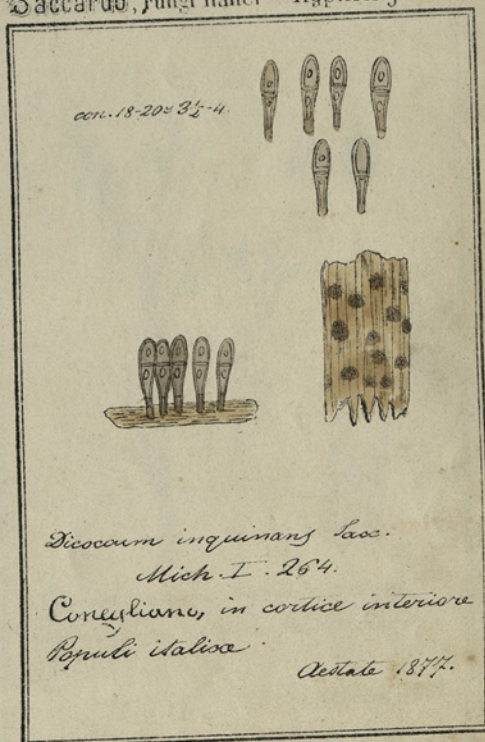 Saccardo, Fungi italici
con. 18-20 ≈ 3½-4.
Dicoccum inquinans Sacc.
Mich. I. 264.
Conegliano, in cortice interiore
Populi italicæ
Aestate 1877.